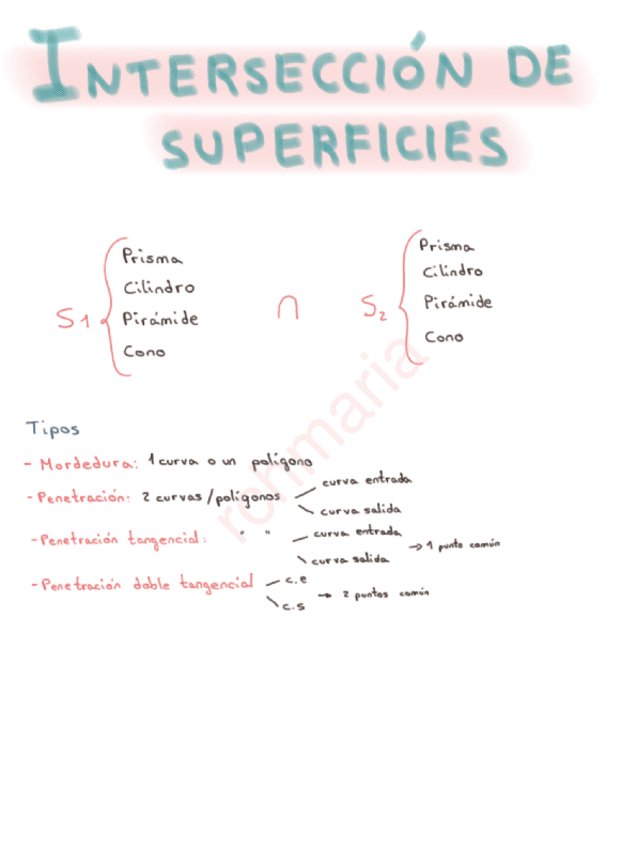 INTERSECCIÓN DE
SUPERFICIES
S1 { Prisma
Cilindro
Pirámide
Cono
∩
S2 { Prisma
Cilindro
Pirámide
Cono
rchmaria
Tipos
- Mordedura: 1 curva o un polígono
- Penetración: 2 curvas/polígonos
curva entrada
curva salida
- Penetración tangencial: " "
curva entrada
curva salida
→ 1 punto común
- Penetración doble tangencial
c.e
c.s
→ 2 puntos común